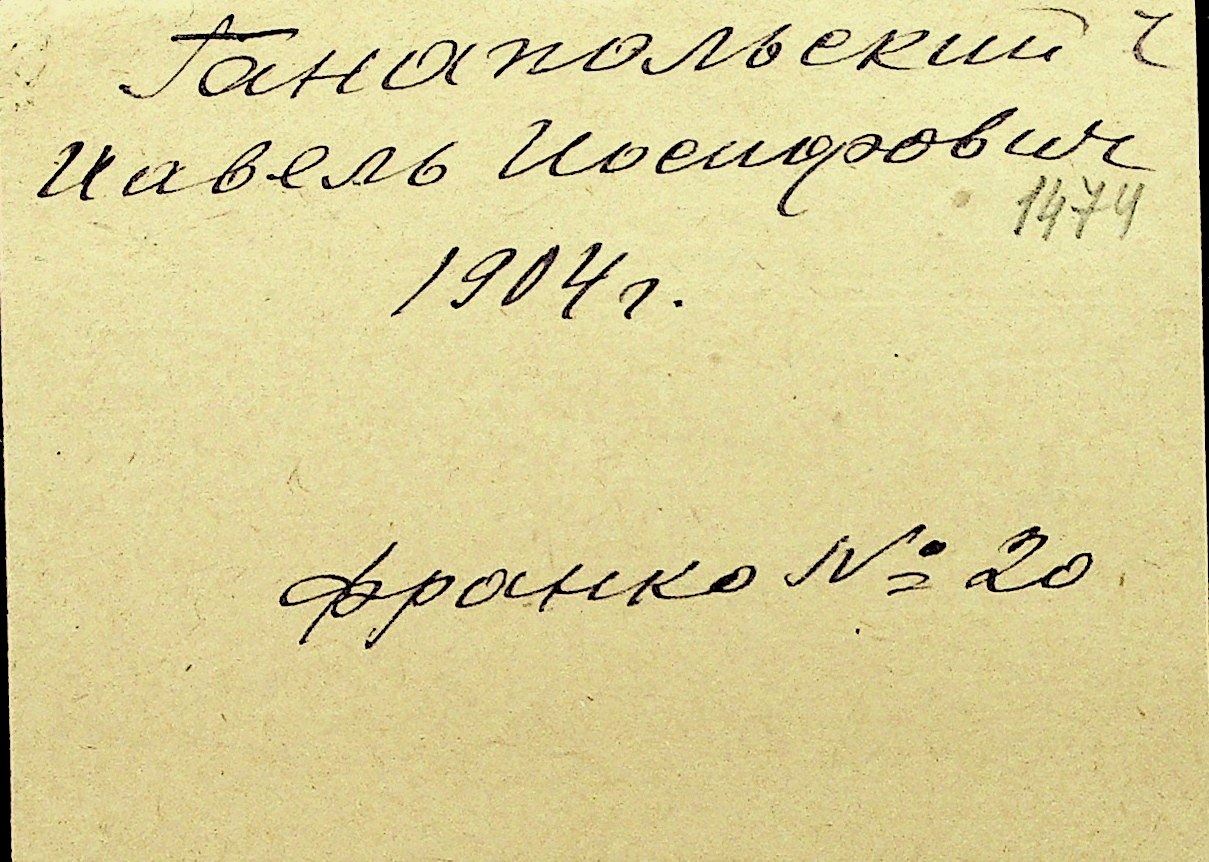 Ганапольский ч
Павель Иосифович
1474
1904 г.
Франко № 20